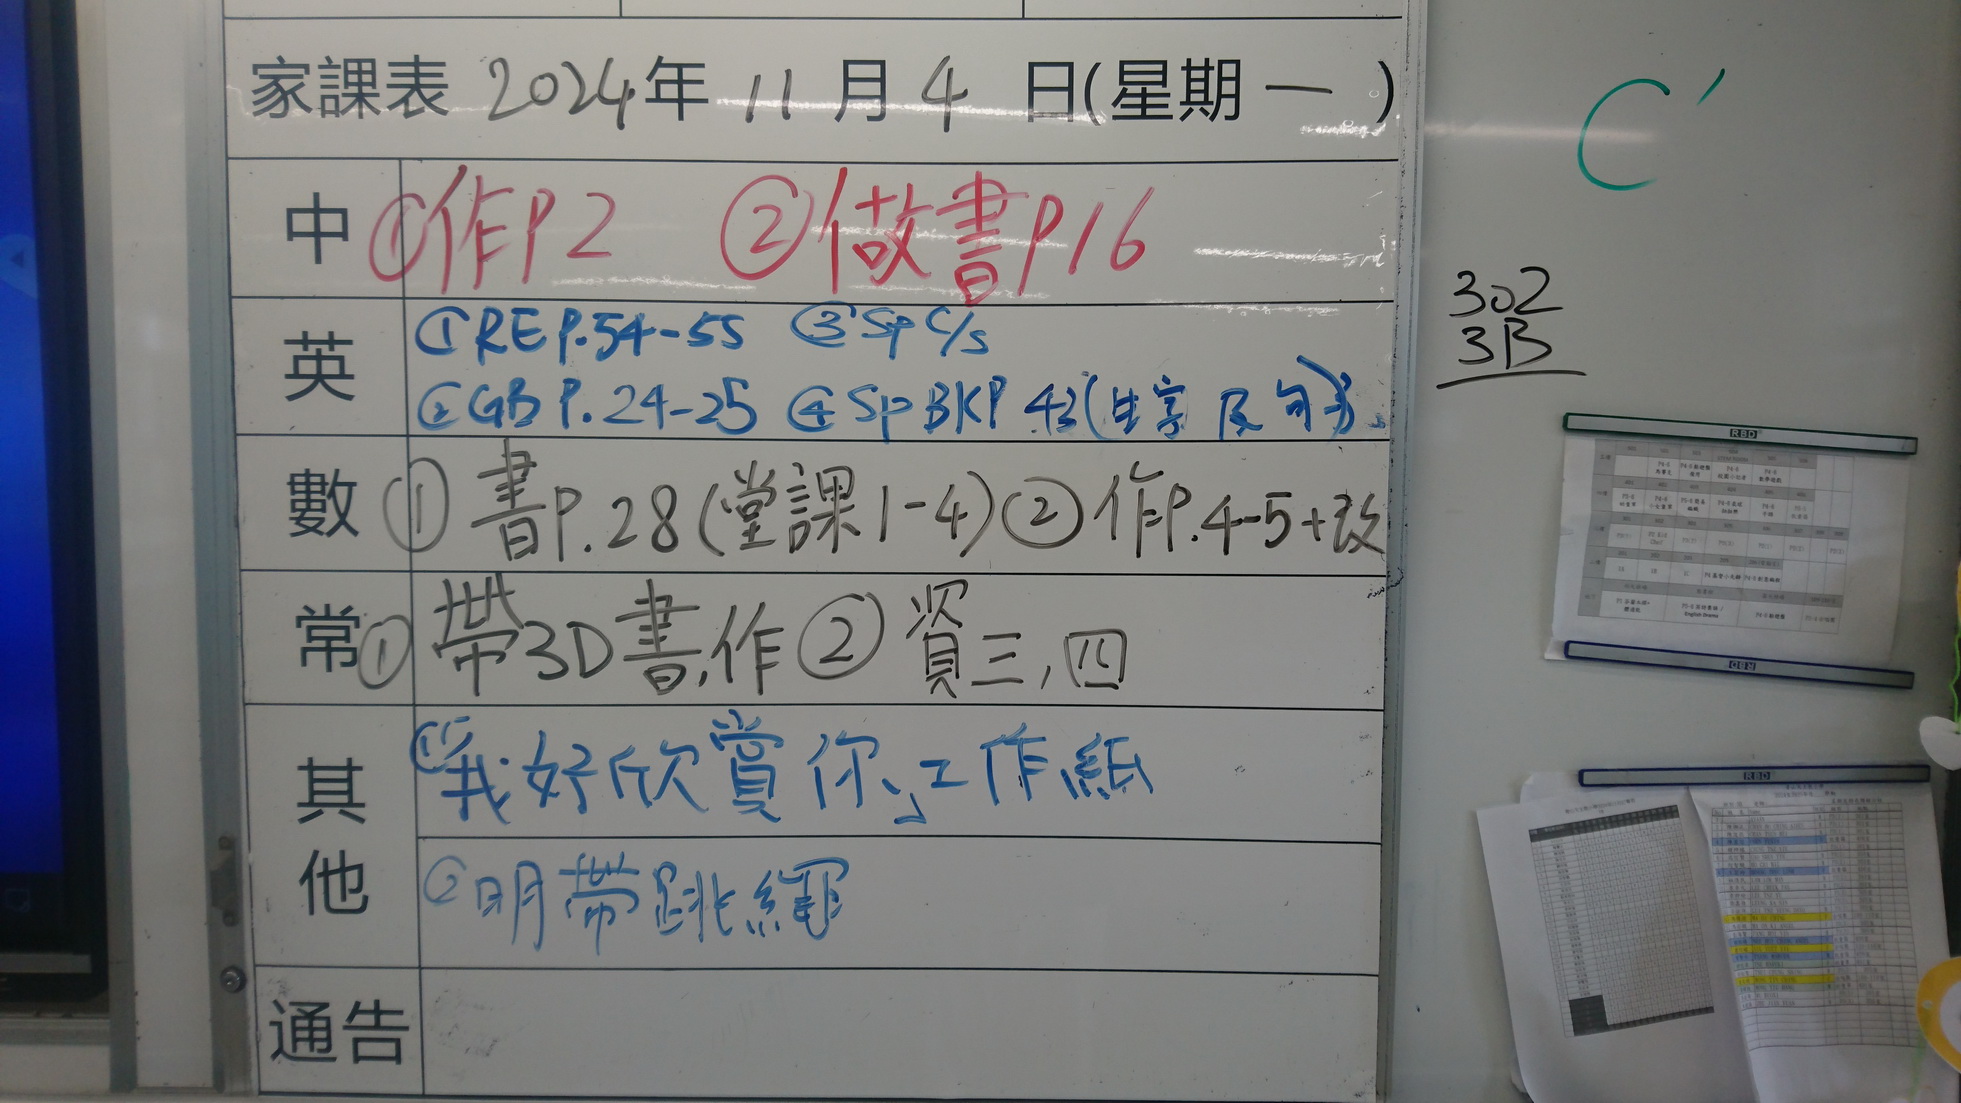 家課表 2024年 11 月 4 日(星期 一 )
中 ①作P2 ②做書P16
英 ①REP.54-55 ③Sp C/s
②GB P.24-25 ④Sp BKP 43(生字 及 句)
數 ① 書P.28(堂課1-4)②作P.4-5+改
常 ① 帶3D書,作 ② 資三,四
其他 ①「我好欣賞你」工作紙
②明帶跳繩
通告
C'
302
3B
RBD
RBD
RBD